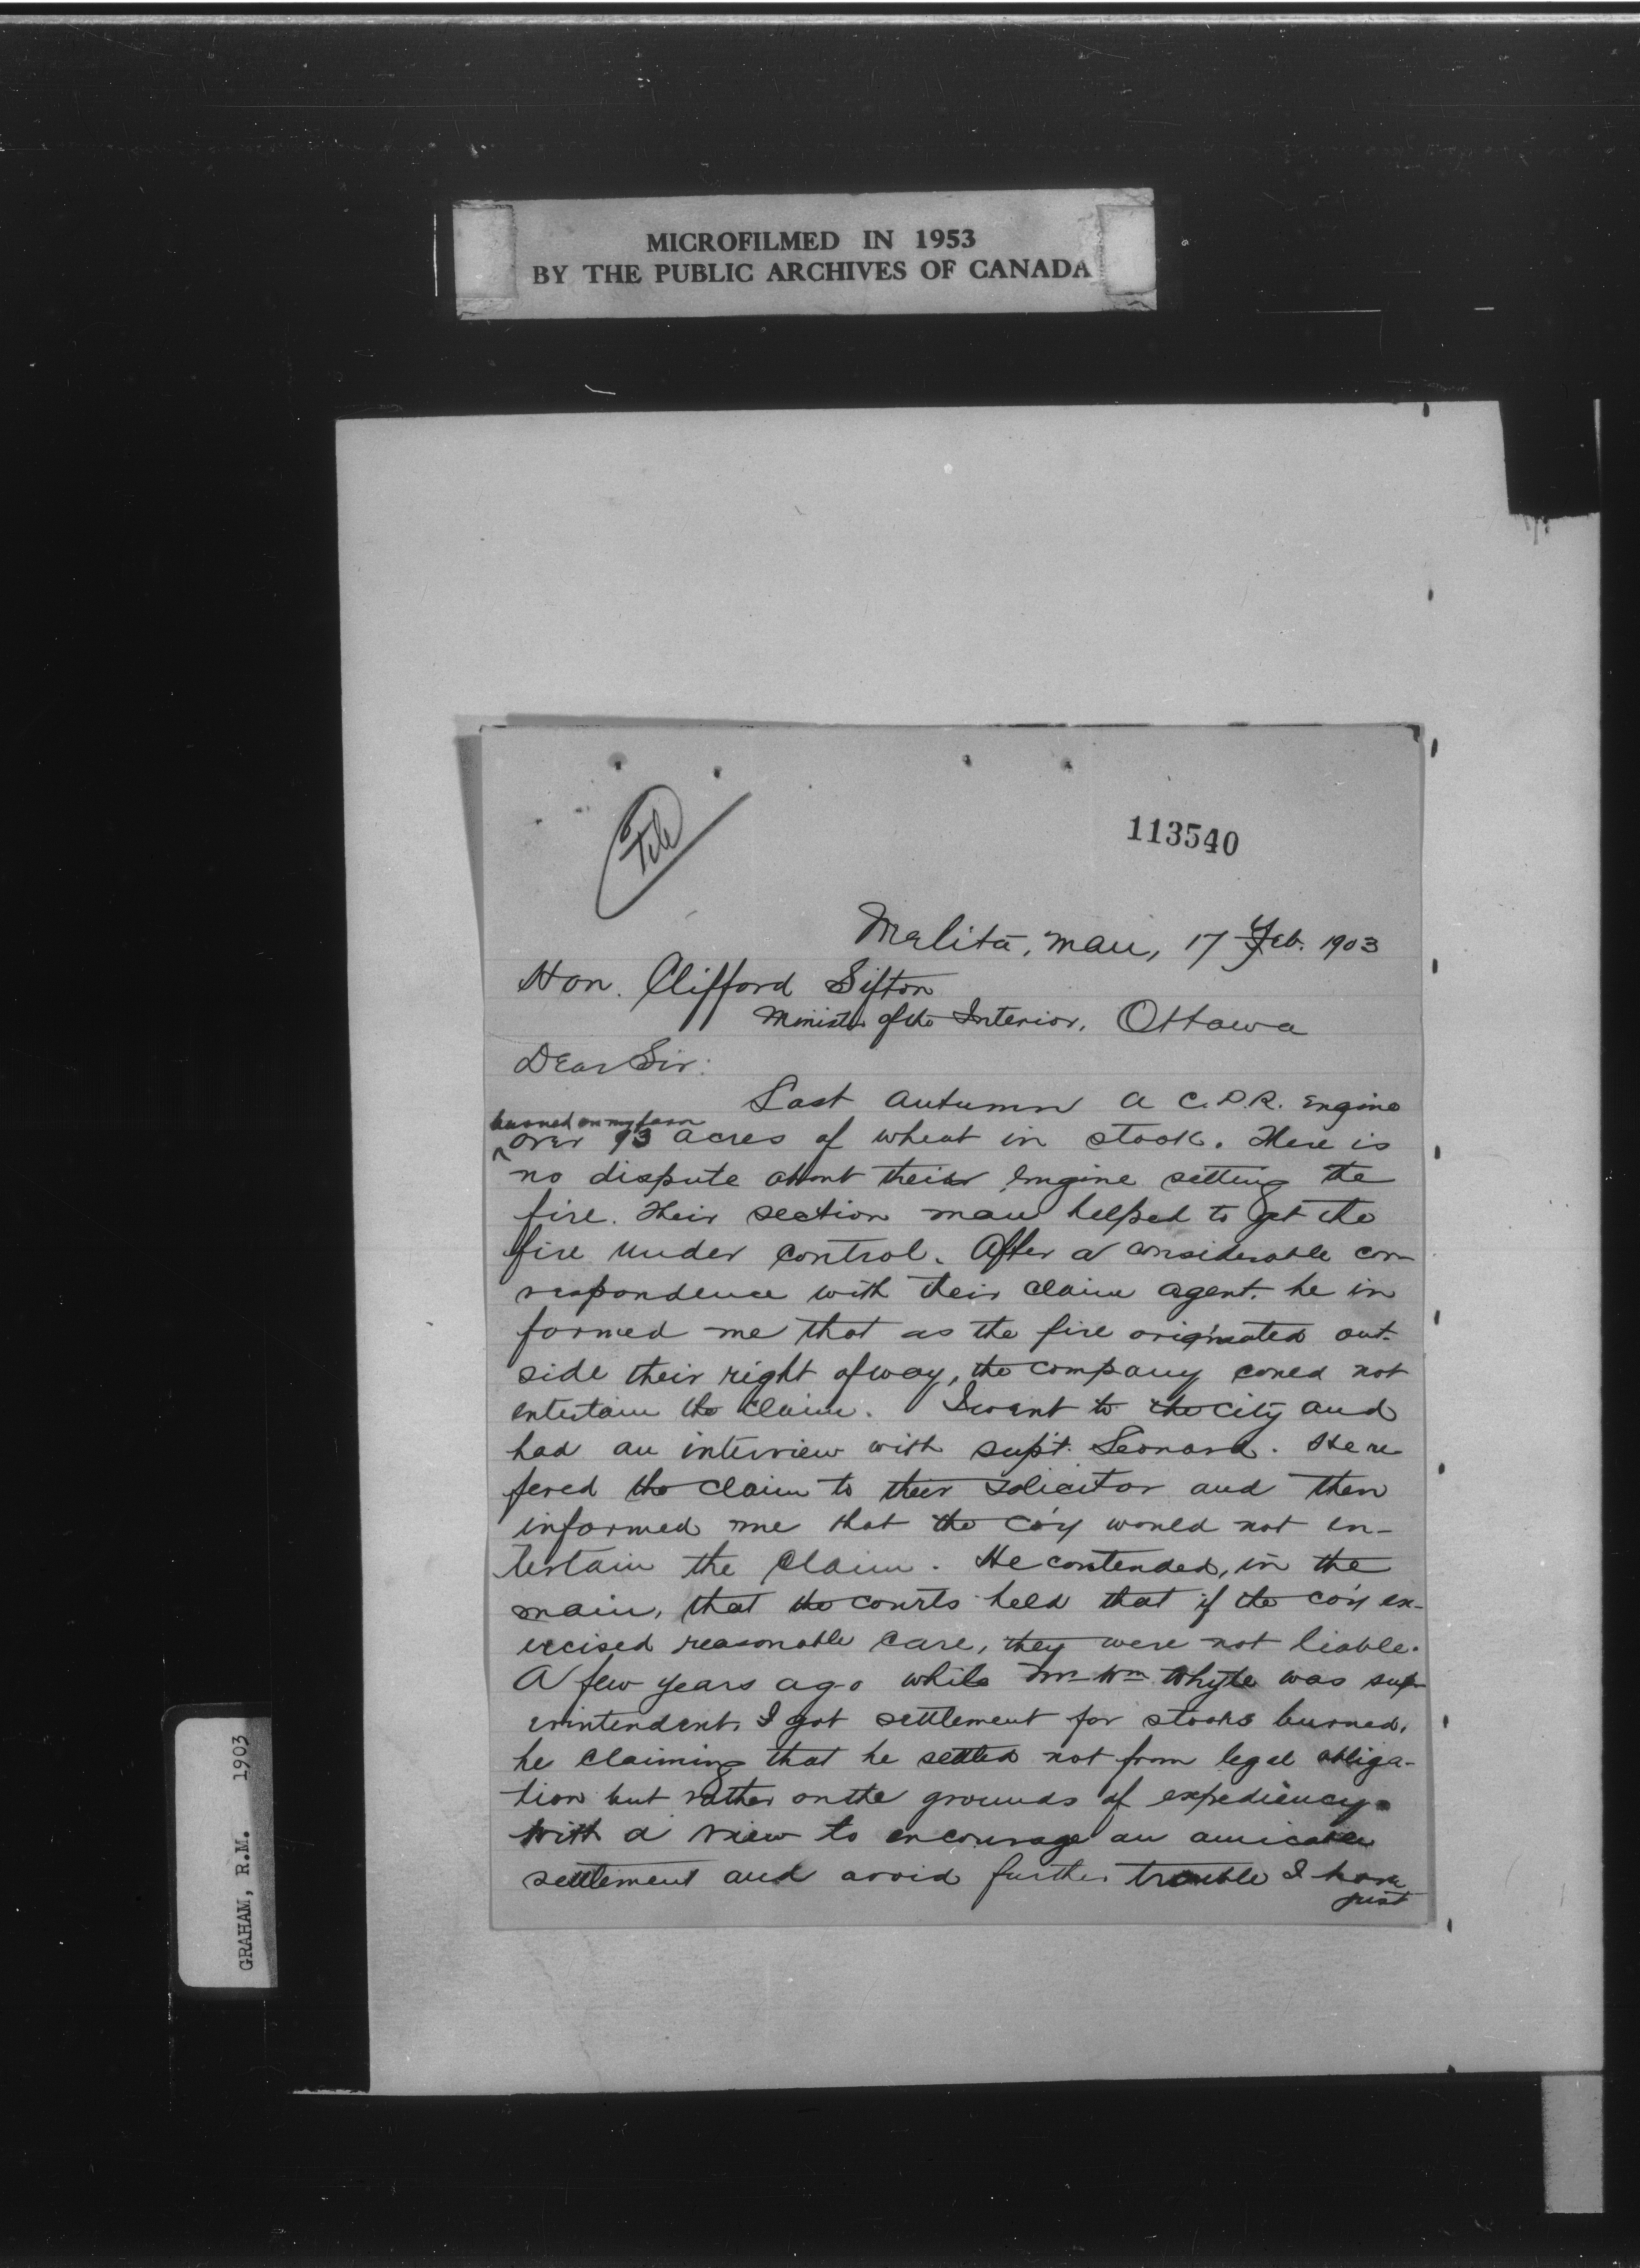 MICROFILMED IN 1953
BY THE PUBLIC ARCHIVES OF CANADA
File
113540
Melita, Man, 17 Feb. 1903
Hon. Clifford Sifton
Minister of the Interior, Ottawa
Dear Sir:
Last autumn a C.P.R. engine
burned on my farm
over 13 acres of wheat in stook. There is
no dispute about their engine setting the
fire. Their section man helped to get the
fire under control. After a considerable cor
respondence with their claim agent. he in
formed me that as the fire originated out-
side their right of way, the company could not
entertain the claim. I went to the city and
had an interview with sup't. Leonard. He re
fered the claim to their solicitor and then
informed me that the co'y would not en-
tertain the claim. He contended, in the
main, that the courts held that if the co'y ex-
ercised reasonable care, they were not liable.
A few years ago while Mr Wm Whyte was sup-
erintendent, I got settlement for stooks burned,
he claiming that he settled not from legal obliga-
tion but rather on the grounds of expediency.
With a view to encourage an amicable
settlement and avoid further trouble I have
just
GRAHAM, R.M. 1903